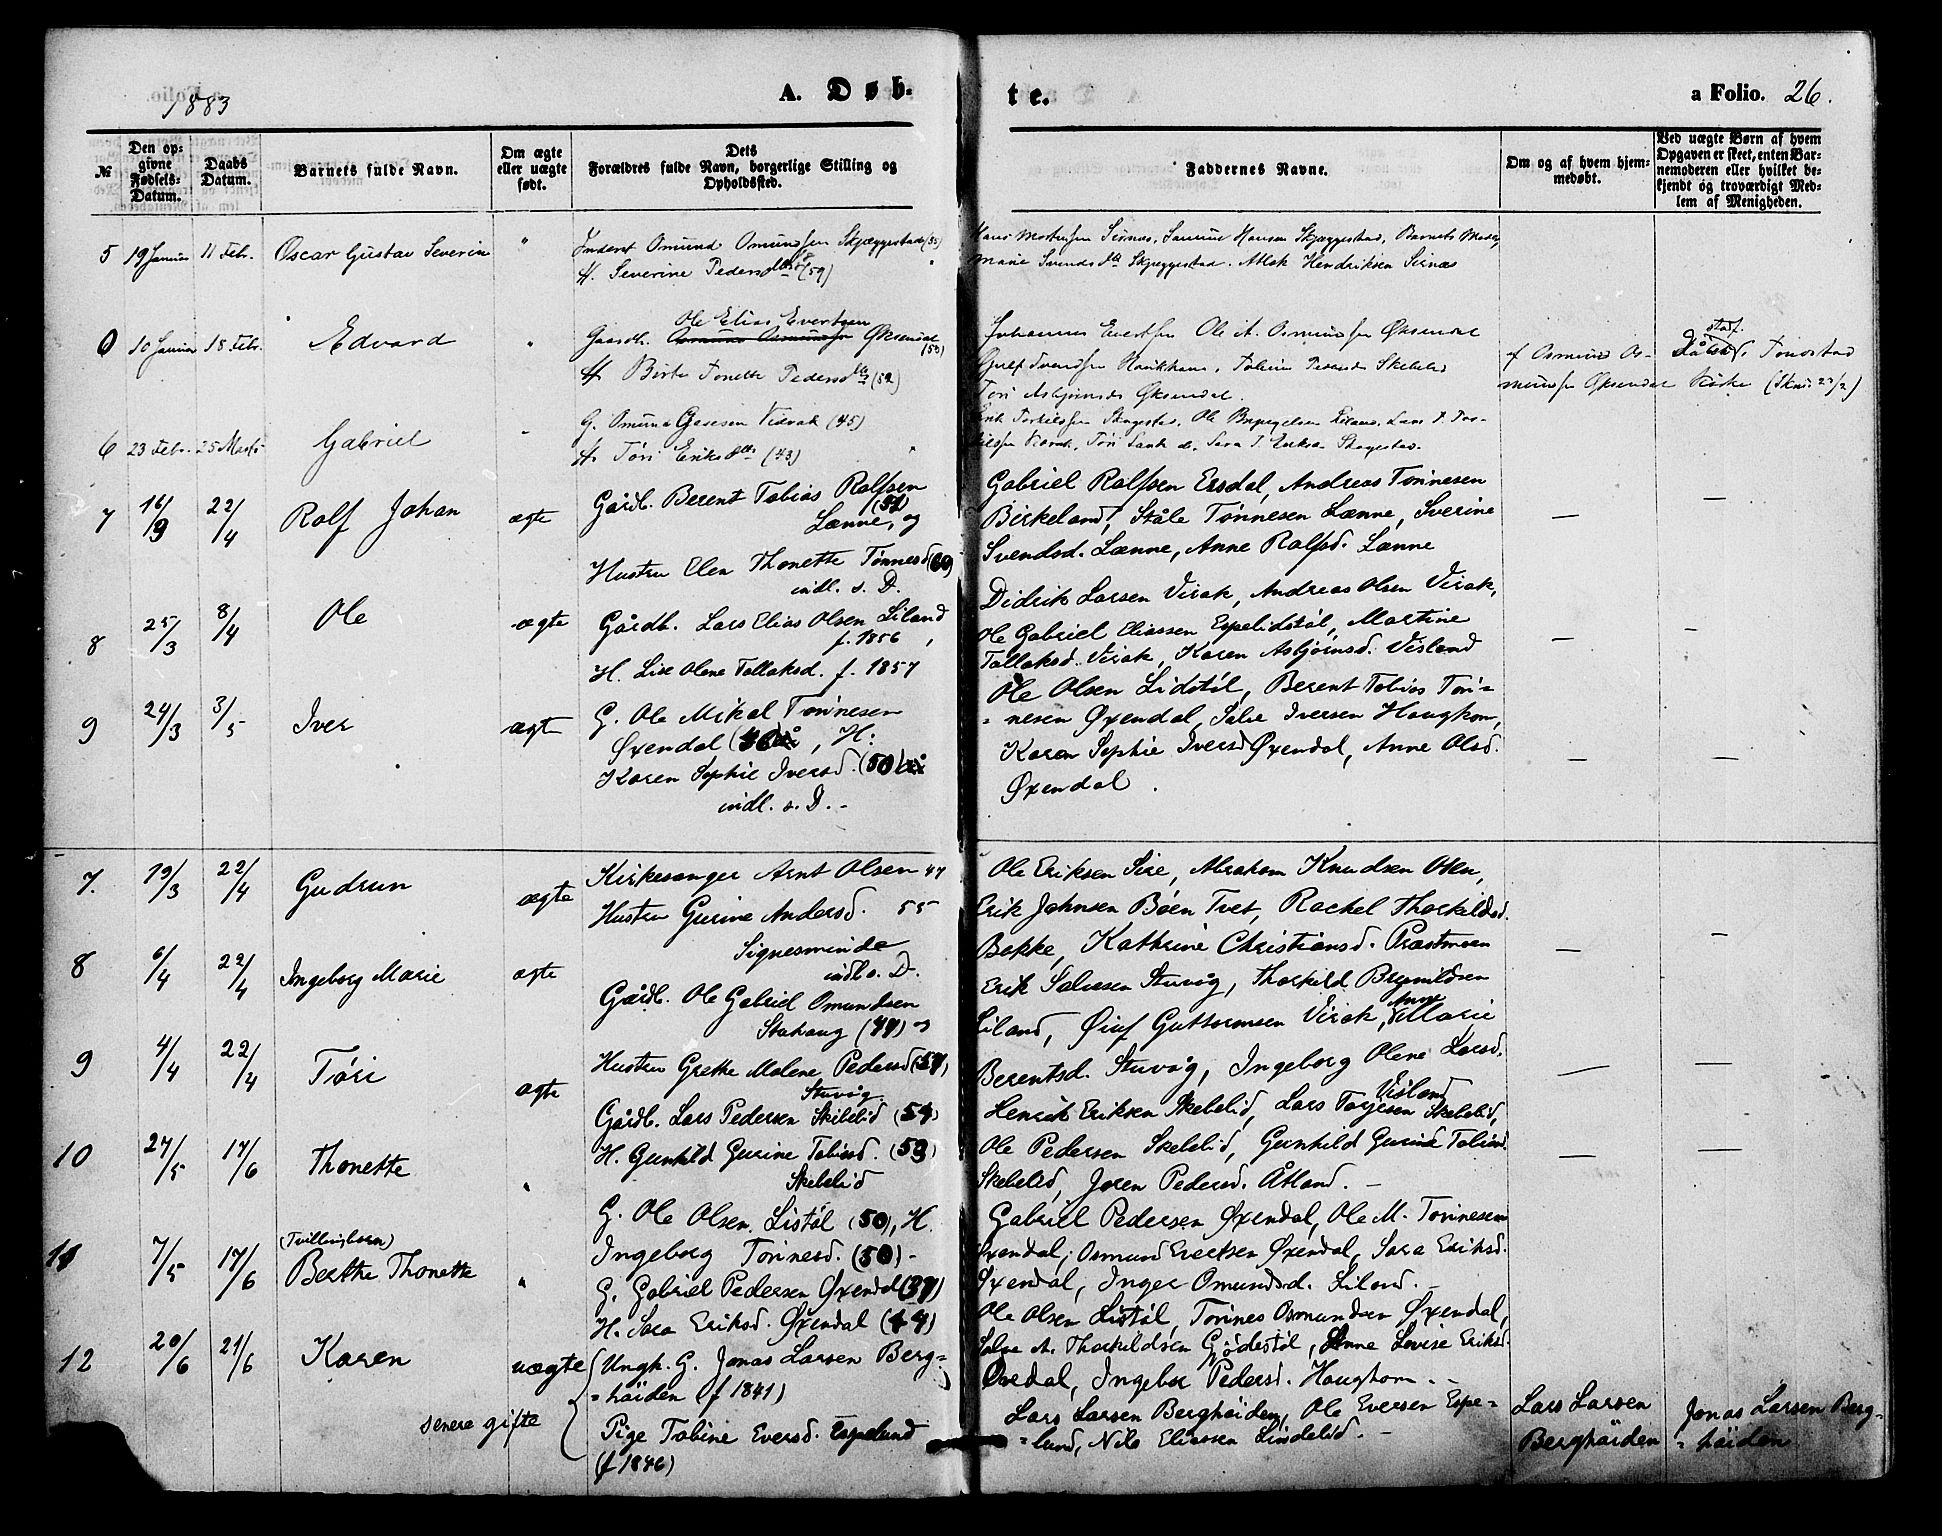 1883
A. Døb-
te.
a Folio. 26.
№
Den op-
givne
Fødsels-
Datum.
Daabs
Datum.
Barnets fulde Navn.
Om ægte
eller uægte
født.
Dets
Forældres fulde Navn, borgerlige Stilling og
Opholdssted.
Faddernes Navne.
Om og af hvem hjem-
medøbt.
Ved uægte Børn af hvem
Opgaven er skeet, enten Bar-
nemoderen eller hvilket be-
kjendt og troværdigt Med-
lem af Menigheden.
5 19 Januar 11 Febr. Oscar Gustav Severin "
Inderst Omund Omundsen Skjeggestad (55)
H. Severine Pedersdtr (59)
Hans Sirnes, Hansen Skjeggestad, Barnets Moder,
Marie Svendsdtr Skjeggestad. Atlak Hendriksen Sirnæs
10 Januar 18 Febr. Edvard "
Ole Elias Evertsen
Gaardb. Osmund Osmundsen Øksendal (53)
H. Berte Tonette Pedersdtr (52)
Johannes Evertsen Ole A. Osmundsen Øksendal
Haukham, Skebelid
Tøri Asbjørnsdr Øksendal.
f Osmund Os-
mundsen Øksendal
Tonstad
Kirke
6 23 Febr. 25 Marts Gabriel
G. Omund Gasesen Virak (45)
H. Tøri Eriksdtr (43)
Liland, Lars T. Tor-
kilsen Virak, Tøri d. Sara T. Skagestad.
7 16/3 22/4 Rolf Johan ægte
Gårdb. Berent Tobias Rolfsen
(51)
Lænne, og
Hustru Elen Thonette Tønnesd (60)
indl. s. D.
Gabriel Rolfsen Ersdal, Andreas Tønnesen
Birkeland, Ståle Tønnesen Lænne, Sverine
Svendsd. Lænne, Anne Rolfsd. Lænne
—
—
8 25/3 8/4 Ole ægte
Gårdb. Lars Elias Olsen Liland
f. 1856,
H. Lise Olene Tollaksd. f. 1857
Didrik Larsen Virak, Andreas Olsen Virak,
Ole Gabriel Eliassen Espelidstøl, Martine
Tollaksd. Virak, Karen Asbjørnsd. Visland
—
—
9 24/3 3/5 Iver ægte
G. Ole Mikal Tønnesen
Øxendal, H:
Karen Sophie Iversd. (50)
indl. s. D. -
Ole Olsen Lidstøl, Berent Tobias Tøn-
=nesen Øxendal, Salve Iversen Haughom,
Karen Sophie Iversd Øxendal, Anne Olsd.
Øxendal.
—
—
7. 19/3 22/4 Gudrun ægte
Kirkesanger Arnt Olsen 47
Hustru Gurine Andersd. 55
Signesminde
indl s. D.
Ole Eriksen Sire, Abraham Knudsen Oken,
Erik Johnsen Bøen Tvet, Rachel Thorkildsd.
Bekke, Kathrine Christiansd. Præstmoen
—
—
8 6/4 22/4 Ingeborg Marie ægte
Gårdb. Ole Gabriel Omundsen
Stahaug (44) og
Hustru Grethe Malene Pedersd (57)
Stuvåg
Erik Salvesen Stuvåg, Thorkild Brynildsen
Liland, Øiuf Guttormsen Virak, Anne Marie
Berentsd. Stuvåg, Ingeborg Olene Larsd.
Visland
9 4/4 22/4 Tøri ægte
Gårdb. Lars Pedersen Skibelid (54)
H. Gunhild Gurine Tobiasd. (53)
Skebelid
Henrik Eriksen Skebelid, Lars Torjesen Skebelid,
Ole Pedersen Skebelid, Gunhild Gurine Tobiasd.
Skebelid, Joren Pedersd. Åtland. -
—
—
10 27/5 17/6 Thonette "
G. Ole Olsen Listøl (50), H.
Ingeborg Tønnesd. (50) -
Gabriel Pedersen Øxendal, Ole M. Tønnesen
Øxendal; Osmund Evertsen Øxendal, Sara Eriksd.
Øxendal, Inger Omundsd. Liland. -
—
—
11 7/5 17/6 (Tvillingbarn)
Berthe Thonette "
G. Gabriel Pedersen Øxendal (37)
H. Sara Eriksd. Øxendal (44)
Ole Olsen Listøl, Tønnes Osmundsen Øxendal,
Salve A. Thorkildsen Gjødestøl, Anne Lovise Eriksd.
Øxedal, Ingebor Pedersd. Haughom. -
12 20/6 21/6 Karen uægte
senere gifte
Ungk. G. Jonas Larsen Berg-
=høiden (f 1841)
Pige Tobine Eversd. Espelund
(f 1846)
Lars Larsen Berghøiden, Ole Eversen Espe-
=lund, Nils Eliassen Lindelid. -
Lars Larsen
Berghøiden
Jonas Larsen Berg-
=høiden